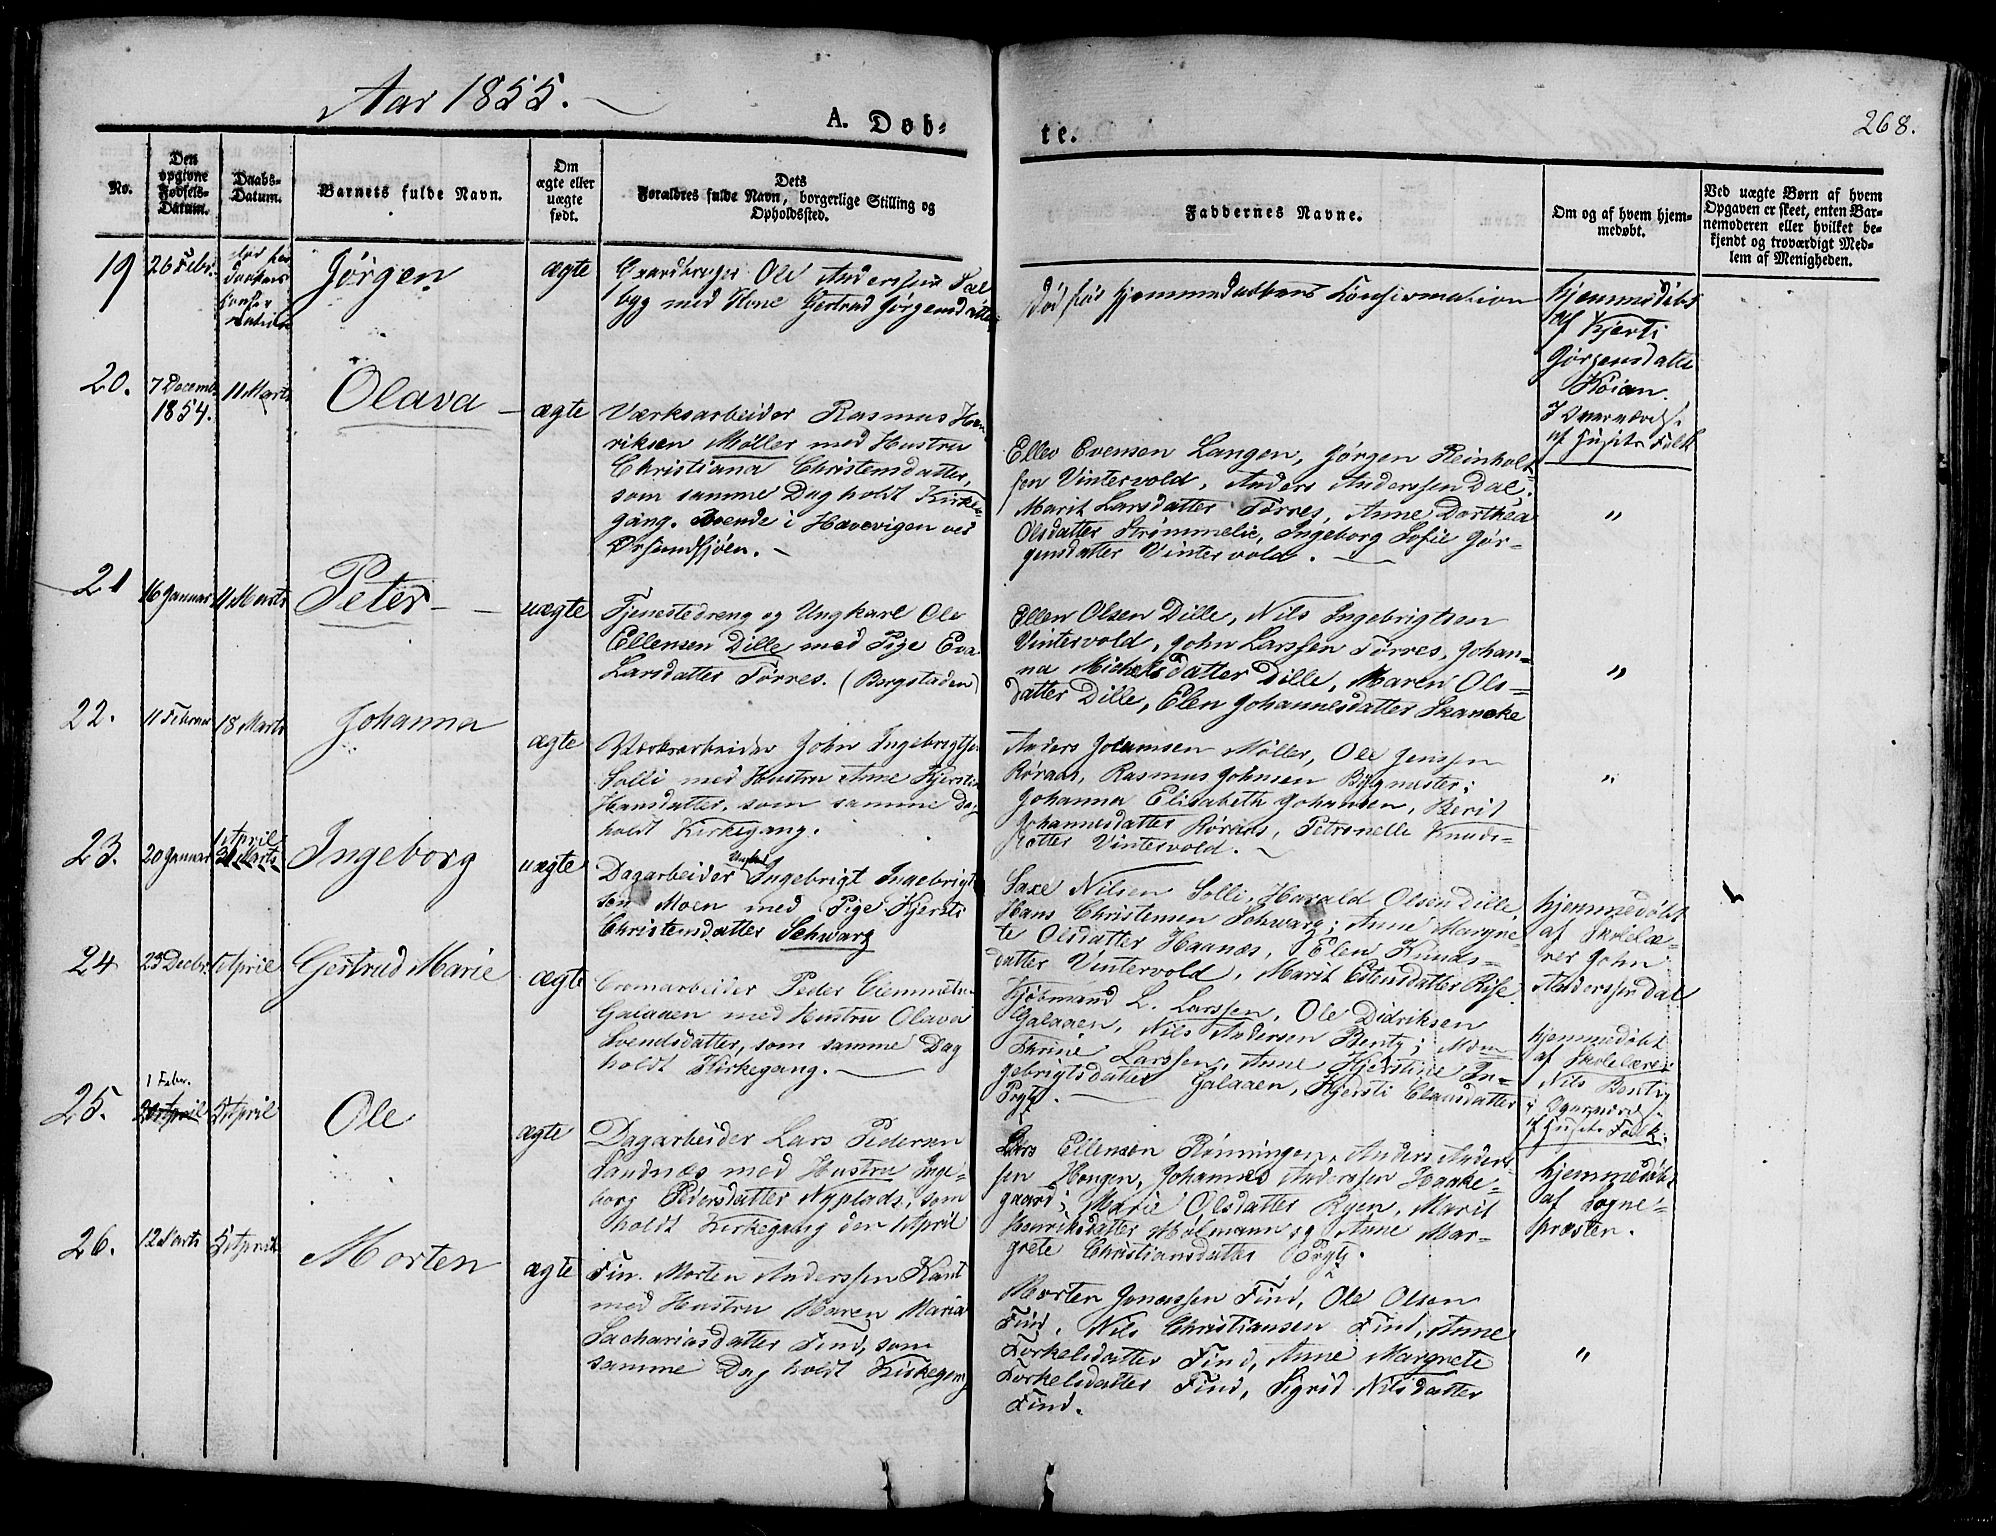 Aar 1855.
A. Døb-
te.
268.
No.
Den
opgivne
Fødsels-
Datum.
Daabs-
Datum.
Barnets fulde Navn.
Om
ægte eller
uægte
født.
Dets
Forældres fulde Navn, borgerlige Stilling og
Opholdssted.
Faddernes Navne.
Om og af hvem hjem-
medøbt.
Ved uægte Børn af hvem
Opgaven er skeet, enten Bar-
nemoderen eller hvilket be-
kjendt og troværdigt Med-
lem af Menigheden.
19
26 Febr.
død før
Daabens
Confir
mation
Jørgen
ægte
Gaardbruger Ole Anderssen Gal
byg med Kone Gertrud Jørgensdatter
død før hjemmedaabens Konfirmation
hjemmedøbt
af Kjersti
Jørgensdatter
Køian.
I Overværelse
af Huusets Folk
20.
7 Decemb.
1854.
11 Marts
Olava
ægte
Værksarbeider Rasmus Hen
riksen Møller med Hustru
Christiana Christensdatter,
som samme Dag holdt Kirke
gang. Boende i Havevigen ved
Ørsundsjøen.
Ellev Evensen Langen, Jørgen Reinholt
sen Vintervold, Anders Anderssen Dal;
Marit Larsdatter Tørres, Anne Dorthea
Olsdatter Strømmelie, Ingeborg Sofie Jør-
gensdatter Vintervold.
"
21
16 Januar
11 Marts
Peter
uægte
Tjenestedreng og Ungkarl Ole
Ellensen Dille med Pige Eva
Larsdatter Tørres. (Bergstaden)
Ellen Olsen Dille, Nils Ingebrigtsen
Vintervold, John Larssen Tørres, Johan-
na Michelsdatter Dille, Maren Ols-
datter Dille, Elen Johannesdatter Skancke
"
22.
11 Februar
18 Marts
Johanna
ægte
Værksarbeider John Ingebrigtsen
Solli med Hustru Anne Kjersti
Hansdatter, som samme Dag
holdt Kirkegang.
Anders Johansen Møller, Ole Jenssen
Røraas, Rasmus Johnsen Bygmester;
Johanna Elisabeth Johansen, Berit
Johannesdatter Røraas, Petronelle Knuds-
datter Vintervold.
"
23.
20 Januar
1 April
Ingeborg
uægte
Dagarbeider Ungkarl Ingebrigt Ingebrigt
sen Moen med Pige Kjersti
Christensdatter Schwarz
Saxe Nilsen Solli, Harald Olsen Dille,
Hans Christensen Schwarz; Anne Margre-
te Olsdatter Haanæs, Elen Knuds-
datter Vintervold, Marit Estensdatter Rise.
hjemmedøbt
af Skolelæ-
rer John
Anderssen Dal
24
23 Decbr.
1 April
Gertrud Marie
ægte
Cromarbeider Peder Clemmetsen
Galaaen med Hustru Olava
Svendsdatter, som samme Dag
holdt Kirkegang.
Kjøbmand L. Larssen, Ole Didriksen
Galaaen, Nils Andersen Bentz; Mdm
Thrine Larssen, Anne Kjerstine In-
gebrigtsdatter Galaaen, Kjersti Clausdatter
Prytz.
hjemmedøbt
af Skolelærer
Nils Bentz
i Overværelse
af Husets Folk.
25.
1 Febr.
5 April
Ole
ægte
Dagarbeider Lars Pedersen
Sandnæs med Hustru Inge-
borg Pedersdatter Nyplads, som
holdt Kirkegang den 1 April
Lars Ellensen Rønningen, Anders Anders
sen Hougen, Johannes Anderssen Haake-
gaard; Marie Olsdatter Ryen, Marit
Henriksdatter Mølmann og Anne Mar-
grete Christiansdatter Prytz.
hjemmedøbt
af Sogne-
præsten.
26.
12 Marts
5 April
Morten
ægte
Fin. Morten Anderssen Kant
med Hustru Maren Maria
Sachariasdatter Find, som
samme Dag holdt Kirkegang
Morten Jonassen Find, Ole Olsen
Find, Nils Christiansen Find, Anne
Torkelsdatter Find, Anne Margrete
Torkelsdatter Find, Sigrid Nilsdatter
Find.
"